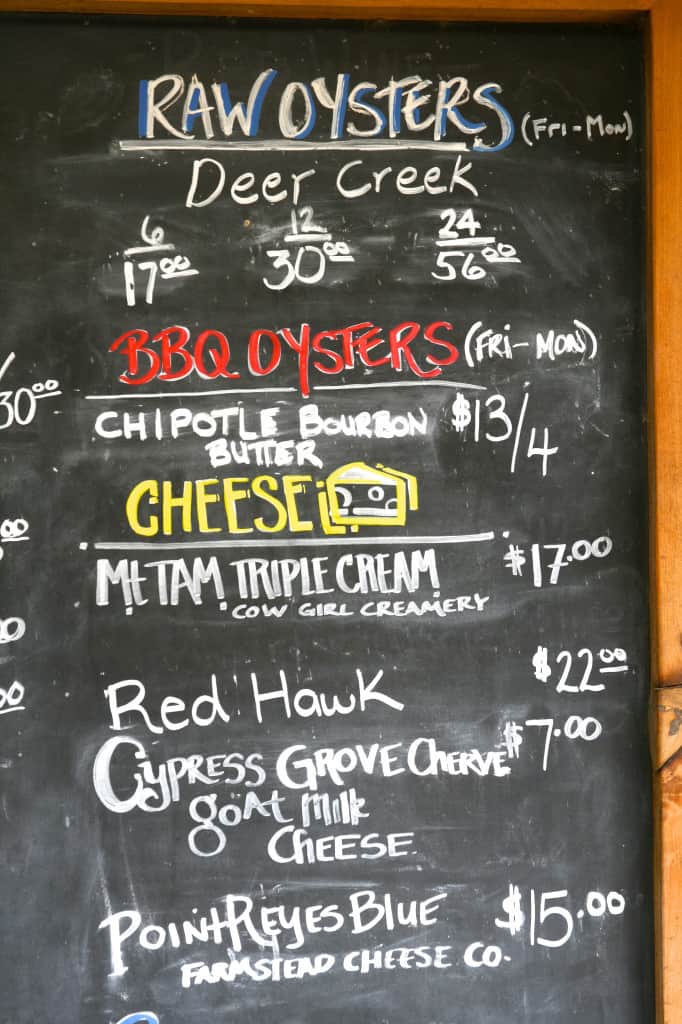 RAW OYSTERS (Fri-Mon)
Deer Creek
6 12 24
17.00 30.00 56.00
BBQ OYSTERS (FRi-MON)
30.00
CHIPOTLE BOURBON $13/4
BUTTER
CHEESE
Mt TAM TRIPLE CREAM $17.00
COW GIRL CREAMERY
Red Hawk $22.00
CYPRESS GROVE CHERVE $7.00
goAt Milk
CHEESE
POINT REYES BLUE $15.00
FARMSTEAD CHEESE CO.